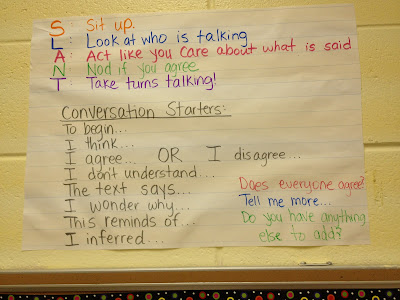 S: Sit up.
L: Look at who is talking
A: Act like you care about what is said
N: Nod if you agree
T: Take turns talking!
Conversation Starters:
To begin...
I think...
I agree... OR I disagree...
I don't understand...
The text says...
I wonder why...
This reminds of...
I inferred...
Does everyone agree?
Tell me more...
Do you have anything
else to add?